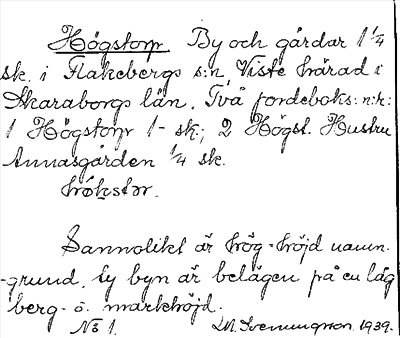 Högstorp By och gårdar 1 1/4
sk. i Flakebergs s:n, Viste härad i
Skaraborgs län. Två jordeboks:n:r:
1 Högstorp 1 - sk; 2 Högst. Hustru
Annasgården 1/4 sk.
Sannolikt är hög- höjd namn-
-grund, ty byn är belägen på en låg
berg- o. markhöjd.
No 1. Svenungsson 1939.